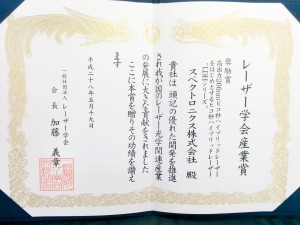 レーザー学会産業賞
奨励賞
高出力266nmピコ秒ハイブリッドレーザー
をはじめとするピコ秒ハイブリッドレーザー
「LDHシリーズ」
スペクトロニクス株式会社 殿
貴社は頭記の優れた開発を推進
され我が国のレーザー光学関連産業
の発展に大きな貢献をされました
ここに本賞を贈りその功績を讃え
ます
平成二十八年五月十九日
一般社団法人 レーザー学会
会長 加藤義章